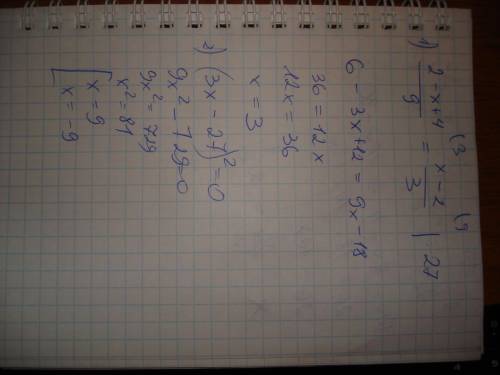 (3 (9
1) 2-x+4/9 = x-2/3 | 27
6 - 3x+12 = 9x-18
36 = 12x
12x = 36
x = 3
2) (3x - 27)² = 0
9x² - 729=0
9x² = 729
x² = 81
[ x = 9
x = -9